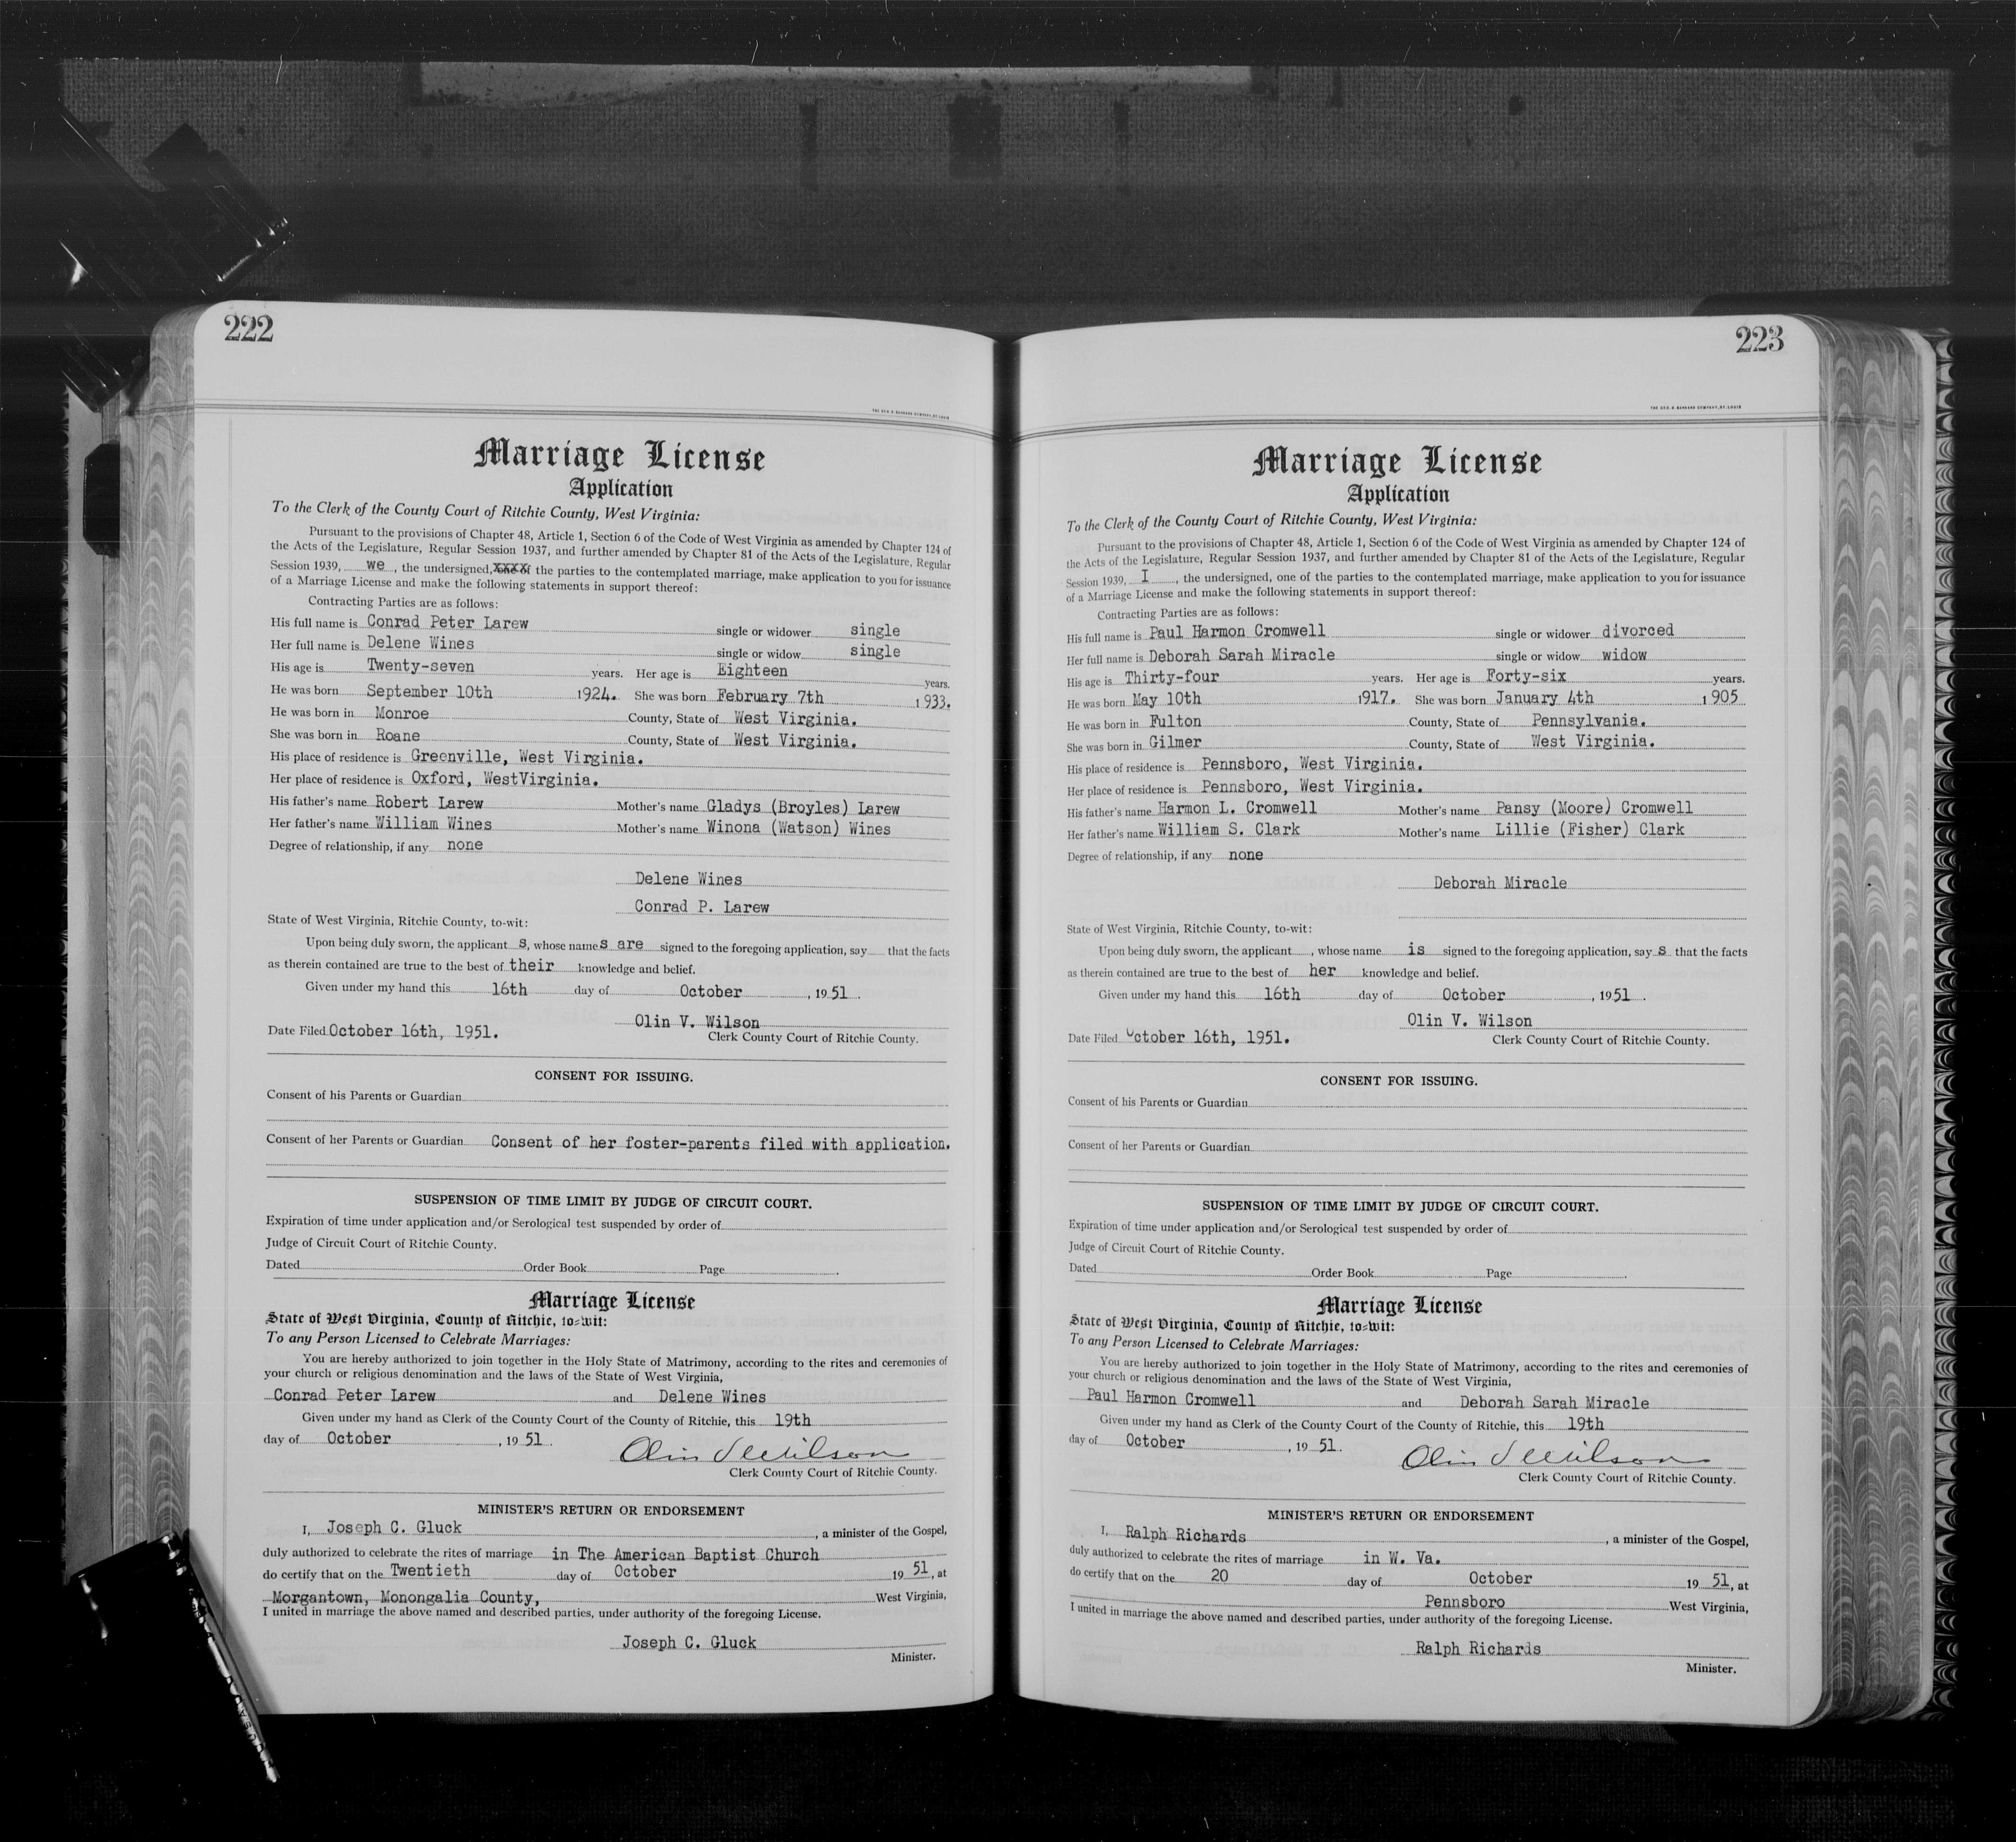 222
THE GEO. D. BARNARD COMPANY, ST. LOUIS
Marriage License
Application
To the Clerk of the County Court of Ritchie County, West Virginia:
Pursuant to the provisions of Chapter 48, Article 1, Section 6 of the Code of West Virginia as amended by Chapter 124 of
the Acts of the Legislature, Regular Session 1937, and further amended by Chapter 81 of the Acts of the Legislature, Regular
Session 1939, we , the undersigned, the parties to the contemplated marriage, make application to you for issuance
of a Marriage License and make the following statements in support thereof:
Contracting Parties are as follows:
His full name is Conrad Peter Larew single or widower single
Her full name is Delene Wines single or widow single
His age is Twenty-seven years. Her age is Eighteen years.
He was born September 10th 1924. She was born February 7th 1933.
He was born in Monroe County, State of West Virginia.
She was born in Roane County, State of West Virginia.
His place of residence is Greenville, West Virginia.
Her place of residence is Oxford, WestVirginia.
His father's name Robert Larew Mother's name Gladys (Broyles) Larew
Her father's name William Wines Mother's name Winona (Watson) Wines
Degree of relationship, if any none
Delene Wines
Conrad P. Larew
State of West Virginia, Ritchie County, to-wit:
Upon being duly sworn, the applicant s, whose names are signed to the foregoing application, say that the facts
as therein contained are true to the best of their knowledge and belief.
Given under my hand this 16th day of October , 1951 .
Olin V. Wilson
Date Filed October 16th, 1951. Clerk County Court of Ritchie County.
CONSENT FOR ISSUING.
Consent of his Parents or Guardian
Consent of her Parents or Guardian Consent of her foster-parents filed with application.
SUSPENSION OF TIME LIMIT BY JUDGE OF CIRCUIT COURT.
Expiration of time under application and/or Serological test suspended by order of
Judge of Circuit Court of Ritchie County.
Dated Order Book Page .
Marriage License
State of West Virginia, County of Ritchie, to-wit:
To any Person Licensed to Celebrate Marriages:
You are hereby authorized to join together in the Holy State of Matrimony, according to the rites and ceremonies of
your church or religious denomination and the laws of the State of West Virginia,
Conrad Peter Larew and Delene Wines
Given under my hand as Clerk of the County Court of the County of Ritchie, this 19th
day of October , 19 51 . Olin V Wilson
Clerk County Court of Ritchie County.
MINISTER'S RETURN OR ENDORSEMENT
I, Joseph C. Gluck , a minister of the Gospel,
duly authorized to celebrate the rites of marriage in The American Baptist Church
do certify that on the Twentieth day of October 19 51, at
Morgantown, Monongalia County, West Virginia,
I united in marriage the above named and described parties, under authority of the foregoing License.
Joseph C. Gluck
Minister.
223
THE GEO. D. BARNARD COMPANY, ST. LOUIS
Marriage License
Application
To the Clerk of the County Court of Ritchie County, West Virginia:
Pursuant to the provisions of Chapter 48, Article 1, Section 6 of the Code of West Virginia as amended by Chapter 124 of
the Acts of the Legislature, Regular Session 1937, and further amended by Chapter 81 of the Acts of the Legislature, Regular
Session 1939, I , the undersigned, one of the parties to the contemplated marriage, make application to you for issuance
of a Marriage License and make the following statements in support thereof:
Contracting Parties are as follows:
His full name is Paul Harmon Cromwell single or widower divorced
Her full name is Deborah Sarah Miracle single or widow widow
His age is Thirty-four years. Her age is Forty-six years.
He was born May 10th 1917. She was born January 4th 1905
He was born in Fulton County, State of Pennsylvania.
She was born in Gilmer County, State of West Virginia.
His place of residence is Pennsboro, West Virginia.
Her place of residence is Pennsboro, West Virginia.
His father's name Harmon L. Cromwell Mother's name Pansy (Moore) Cromwell
Her father's name William S. Clark Mother's name Lillie (Fisher) Clark
Degree of relationship, if any none
Deborah Miracle
State of West Virginia, Ritchie County, to-wit:
Upon being duly sworn, the applicant , whose name is signed to the foregoing application, say s that the facts
as therein contained are true to the best of her knowledge and belief.
Given under my hand this 16th day of October , 1951 .
Olin V. Wilson
Date Filed October 16th, 1951. Clerk County Court of Ritchie County.
CONSENT FOR ISSUING.
Consent of his Parents or Guardian
Consent of her Parents or Guardian
SUSPENSION OF TIME LIMIT BY JUDGE OF CIRCUIT COURT.
Expiration of time under application and/or Serological test suspended by order of
Judge of Circuit Court of Ritchie County.
Dated Order Book Page .
Marriage License
State of West Virginia, County of Ritchie, to-wit:
To any Person Licensed to Celebrate Marriages:
You are hereby authorized to join together in the Holy State of Matrimony, according to the rites and ceremonies of
your church or religious denomination and the laws of the State of West Virginia,
Paul Harmon Cromwell and Deborah Sarah Miracle
Given under my hand as Clerk of the County Court of the County of Ritchie, this 19th
day of October , 19 51. Olin V Wilson
Clerk County Court of Ritchie County.
MINISTER'S RETURN OR ENDORSEMENT
I, Ralph Richards , a minister of the Gospel,
duly authorized to celebrate the rites of marriage in W. Va.
do certify that on the 20 day of October 19 51, at
Pennsboro West Virginia,
I united in marriage the above named and described parties, under authority of the foregoing License.
Ralph Richards
Minister.